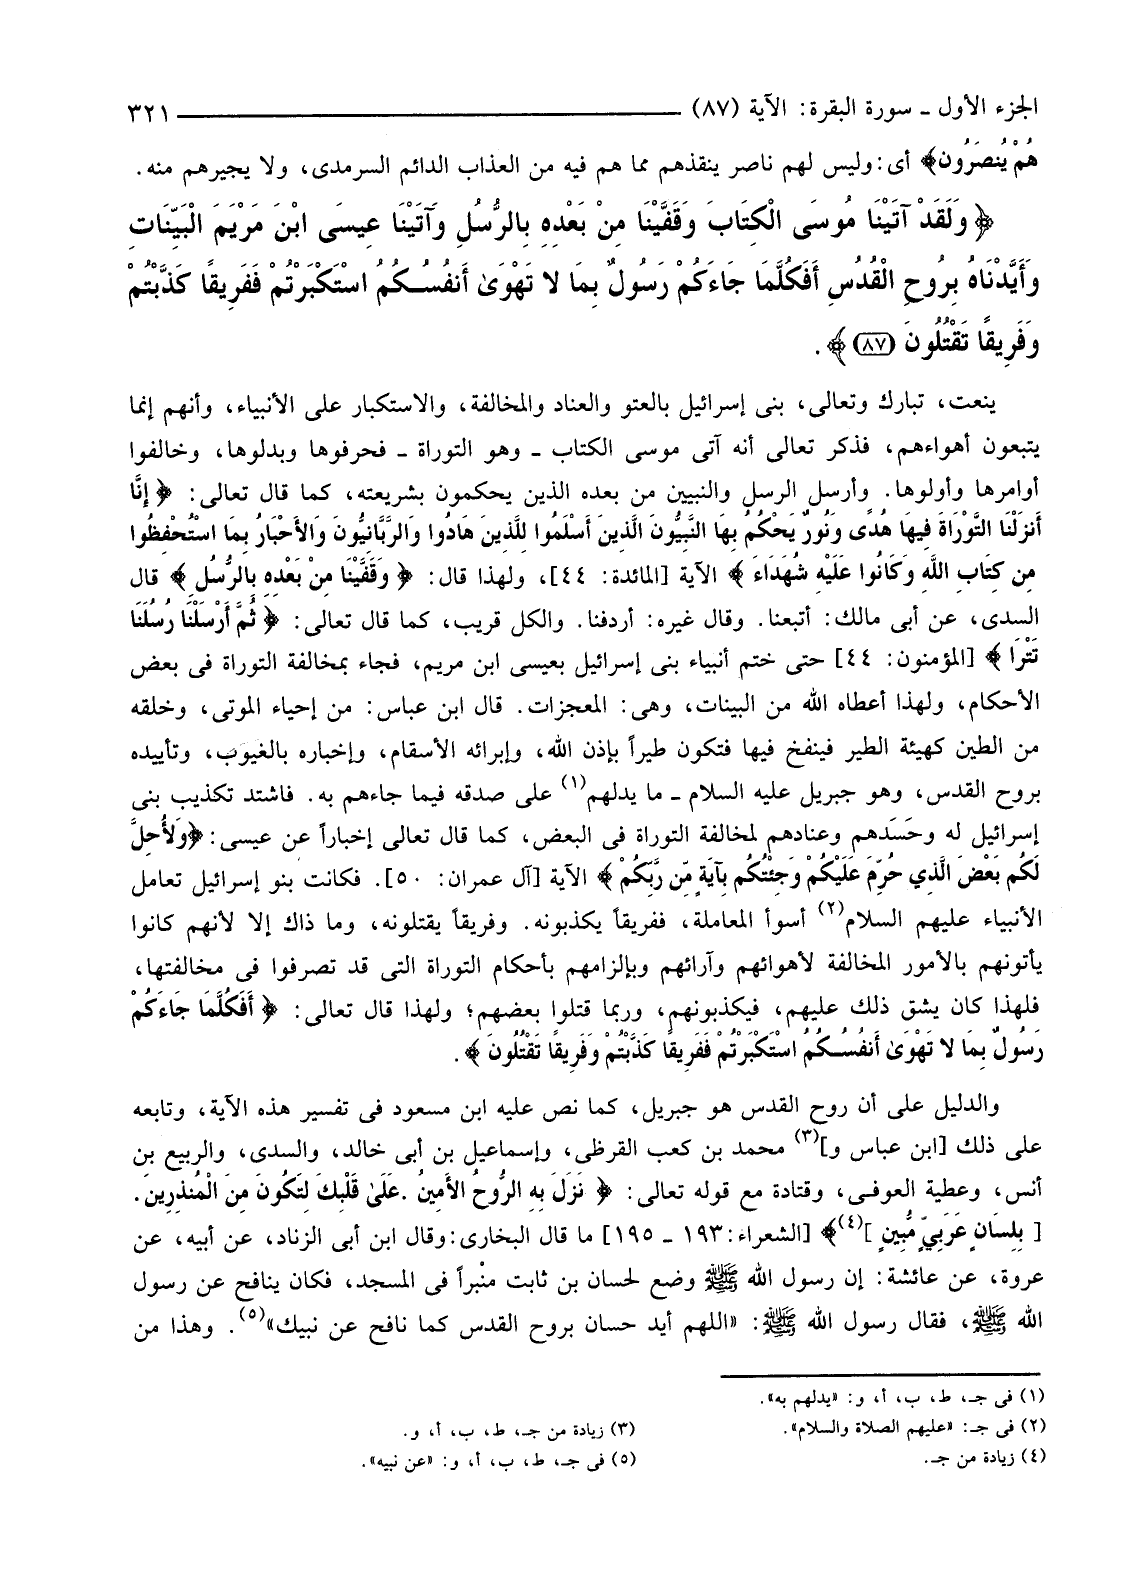 الجزء الأول ـ سورة البقرة: الآية (٨٧) ٣٢١
هُمْ يُنصَرُون﴾ أى: وليس لهم ناصر ينقذهم مما هم فيه من العذاب الدائم السرمدى، ولا يجيرهم منه.
﴿وَلَقَدْ آتَيْنَا مُوسَى الْكِتَابَ وَقَفَّيْنَا مِنْ بَعْدِهِ بِالرُّسُلِ وَآتَيْنَا عِيسَى ابْنَ مَرْيَمَ الْبَيِّنَاتِ
وَأَيَّدْنَاهُ بِرُوحِ الْقُدُسِ أَفَكُلَّمَا جَاءَكُمْ رَسُولٌ بِمَا لا تَهْوَىٰ أَنفُسُكُمُ اسْتَكْبَرْتُمْ فَفَرِيقًا كَذَّبْتُمْ
وَفَرِيقًا تَقْتُلُونَ (٨٧)﴾.
ينعت، تبارك وتعالى، بنى إسرائيل بالعتو والعناد والمخالفة، والاستكبار على الأنبياء، وأنهم إنما
يتبعون أهواءهم، فذكر تعالى أنه آتى موسى الكتاب ـ وهو التوراة ـ فحرفوها وبدلوها، وخالفوا
أوامرها وأولوها. وأرسل الرسل والنبيين من بعده الذين يحكمون بشريعته، كما قال تعالى: ﴿إِنَّا
أَنزَلْنَا التَّوْرَاةَ فِيهَا هُدًى وَنُورٌ يَحْكُمُ بِهَا النَّبِيُّونَ الَّذِينَ أَسْلَمُوا لِلَّذِينَ هَادُوا وَالرَّبَّانِيُّونَ وَالأَحْبَارُ بِمَا اسْتُحْفِظُوا
مِن كِتَابِ اللَّهِ وَكَانُوا عَلَيْهِ شُهَدَاءَ﴾ الآية [المائدة: ٤٤]، ولهذا قال: ﴿وَقَفَّيْنَا مِنْ بَعْدِهِ بِالرُّسُلِ﴾ قال
السدى، عن أبى مالك: أتبعنا. وقال غيره: أردفنا. والكل قريب، كما قال تعالى: ﴿ثُمَّ أَرْسَلْنَا رُسُلَنَا
تَتْرَا﴾ [المؤمنون: ٤٤] حتى ختم أنبياء بنى إسرائيل بعيسى ابن مريم، فجاء بمخالفة التوراة فى بعض
الأحكام، ولهذا أعطاه الله من البينات، وهى: المعجزات. قال ابن عباس: من إحياء الموتى، وخلقه
من الطين كهيئة الطير فينفخ فيها فتكون طيراً بإذن الله، وإبرائه الأسقام، وإخباره بالغيوب، وتأييده
بروح القدس، وهو جبريل عليه السلام ـ ما يدلهم(١) على صدقه فيما جاءهم به. فاشتد تكذيب بنى
إسرائيل له وحَسَدهم وعنادهم لمخالفة التوراة فى البعض، كما قال تعالى إخباراً عن عيسى: ﴿وَلأُحِلَّ
لَكُم بَعْضَ الَّذِي حُرِّمَ عَلَيْكُمْ وَجِئْتُكُم بِآيَةٍ مِّن رَّبِّكُمْ﴾ الآية [آل عمران: ٥٠]. فكانت بنو إسرائيل تعامل
الأنبياء عليهم السلام(٢) أسوأ المعاملة، ففريقاً يكذبونه. وفريقاً يقتلونه، وما ذاك إلا لأنهم كانوا
يأتونهم بالأمور المخالفة لأهوائهم وآرائهم وبإلزامهم بأحكام التوراة التى قد تصرفوا فى مخالفتها،
فلهذا كان يشق ذلك عليهم، فيكذبونهم، وربما قتلوا بعضهم؛ ولهذا قال تعالى: ﴿أَفَكُلَّمَا جَاءَكُمْ
رَسُولٌ بِمَا لا تَهْوَىٰ أَنفُسُكُمُ اسْتَكْبَرْتُمْ فَفَرِيقًا كَذَّبْتُمْ وَفَرِيقًا تَقْتُلُونَ﴾.
والدليل على أن روح القدس هو جبريل، كما نص عليه ابن مسعود فى تفسير هذه الآية، وتابعه
على ذلك [ابن عباس و](٣) محمد بن كعب القرظى، وإسماعيل بن أبى خالد، والسدى، والربيع بن
أنس، وعطية العوفى، وقتادة مع قوله تعالى: ﴿نَزَلَ بِهِ الرُّوحُ الأَمِينُ. عَلَىٰ قَلْبِكَ لِتَكُونَ مِنَ الْمُنذِرِينَ.
[بِلِسَانٍ عَرَبِيٍّ مُّبِينٍ](٤)﴾ [الشعراء: ١٩٣ ـ ١٩٥] ما قال البخارى: وقال ابن أبى الزناد، عن أبيه، عن
عروة، عن عائشة: إن رسول الله ﷺ وضع لحسان بن ثابت منْبراً فى المسجد، فكان ينافح عن رسول
الله ﷺ، فقال رسول الله ﷺ: «اللهم أيد حسان بروح القدس كما نافح عن نبيك»(٥). وهذا من
(١) فى جـ، ط، ب، أ، و: «يدلهم به».
(٢) فى جـ: «عليهم الصلاة والسلام». (٣) زيادة من جـ، ط، ب، أ، و.
(٤) زيادة من جـ. (٥) فى جـ، ط، ب، أ، و: «عن نبيه».